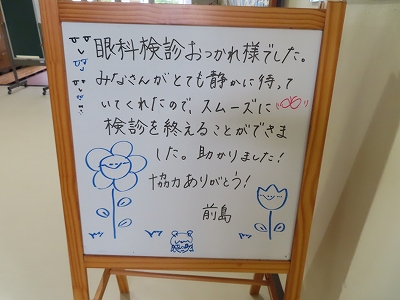 眼科検診おつかれ様でした。
みなさんがとても静かに待って
いてくれたので、スムーズに
検診を終えることができま
した。助かりました!
協力ありがとう!
前島